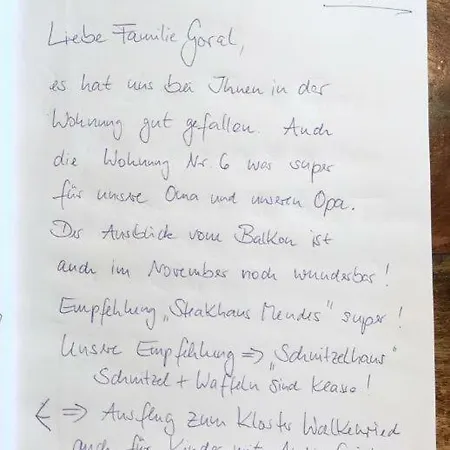 Liebe Familie Goral,
es hat uns bei Ihnen in der
Wohnung gut gefallen. Auch
die Wohnung Nr. 6 was super
für unsere Oma und unseren Opa.
Der Ausblick vom Balkon ist
auch im November noch wunderbar!
Empfehlung „Steakhaus Mendes" super!
Unsere Empfehlung => „Schnitzelhaus"
Schnitzel + Waffeln sind klasse!
<= => Ausflug zum Kloster Walkenried
auch für Kinder mit